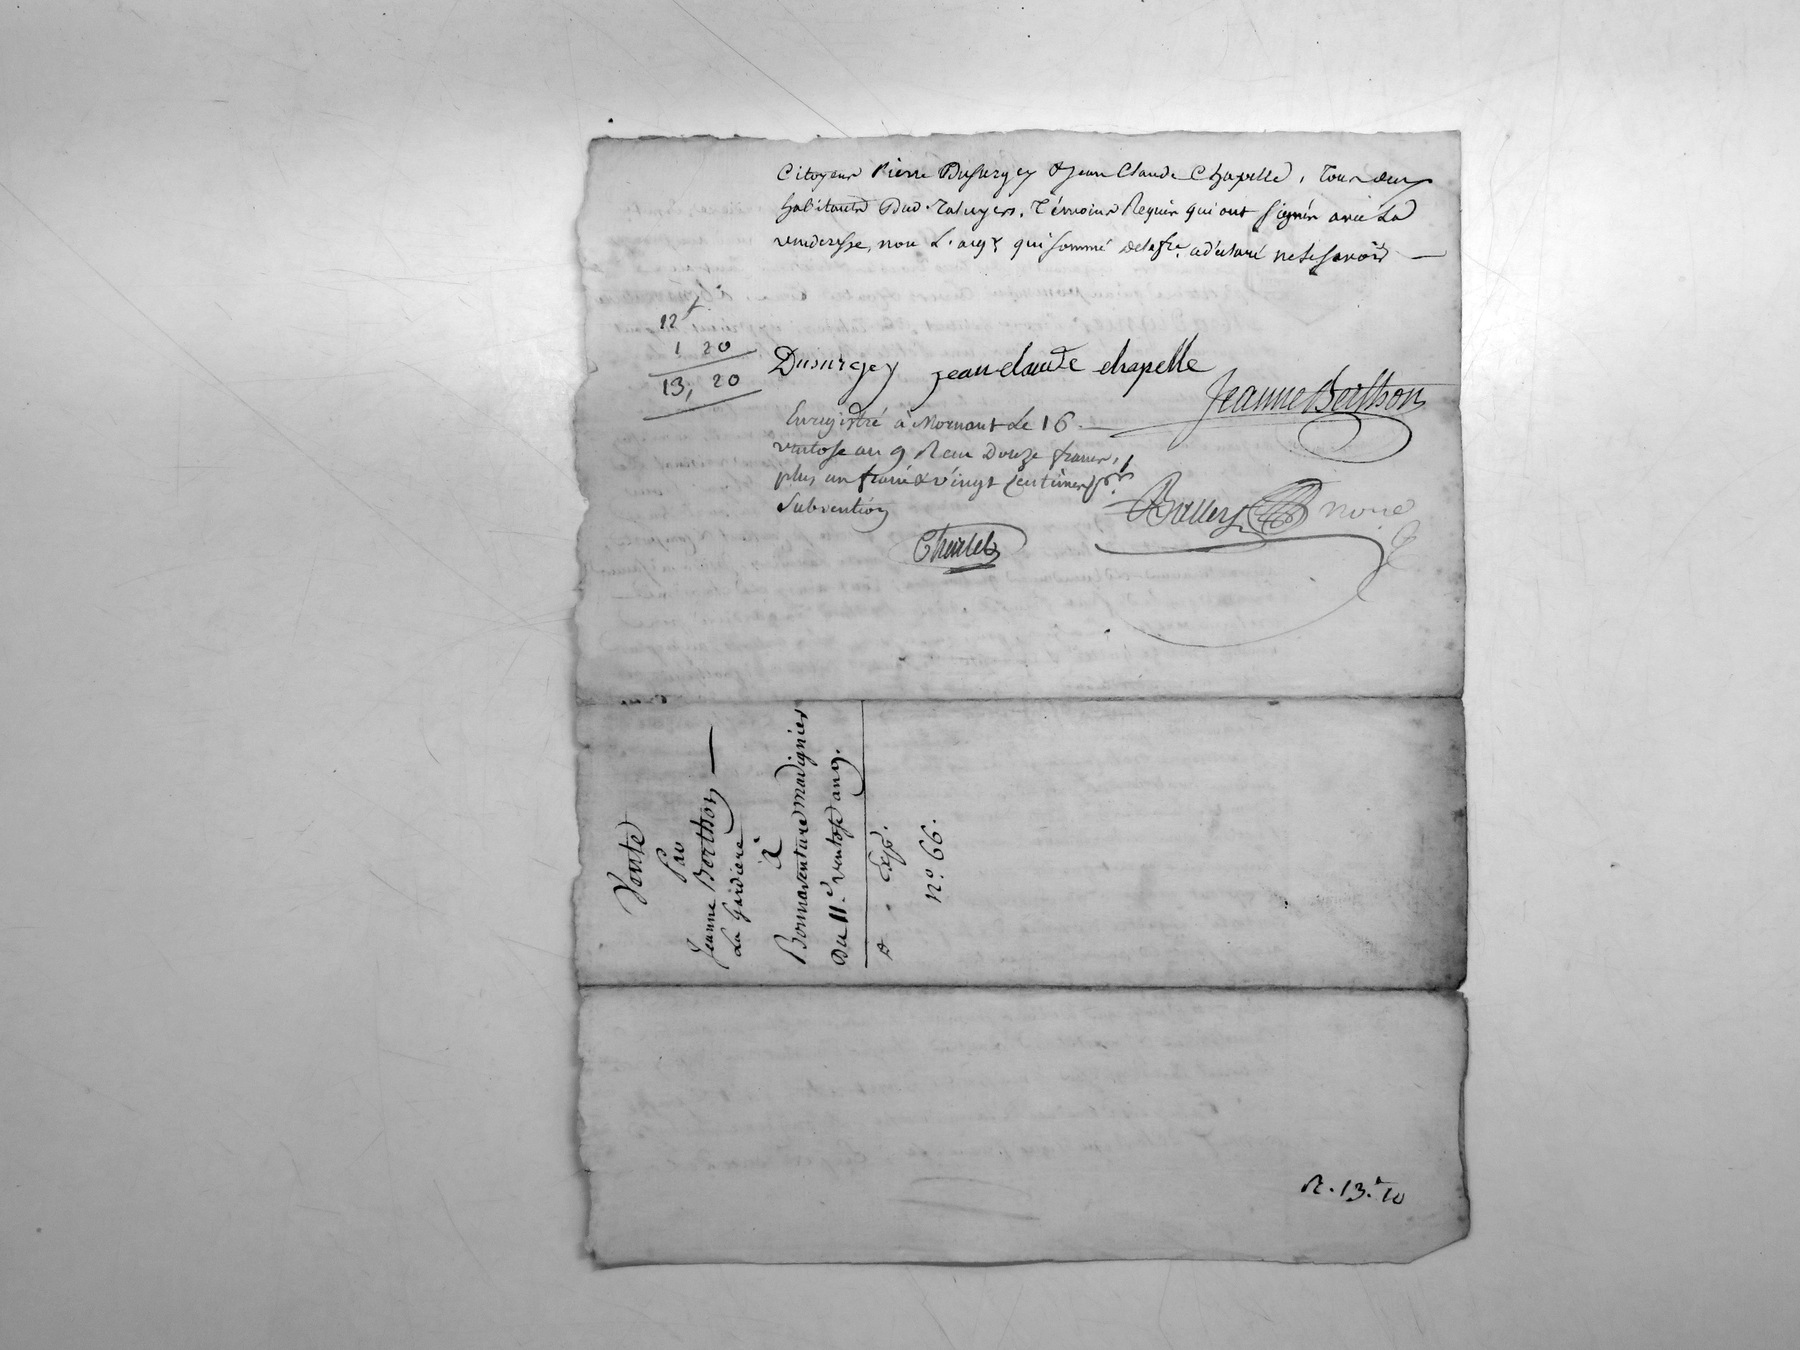 Citoyens Pierre Dusurgey & Jean Claude Chapelle, tous deux
habitants dud. Taluyers, témoins Requis qui ont signés avec la
venderesse, non l'acqr. qui sommé de le fre. a déclaré ne le savoir —
12f
1 20
13, 20
Dusurgey jean claude chapelle
Jeanne Berthon
Enregistré à Mornant le 16
ventose an 9 Reçu Douze francs,
plus un franc & vingt centimes pr.
Subvention
nore
Vente
Par
Jeanne Berthon —
La Gardiere
à
Bonnaventure Madignier
Du 11.e ventose an 9.
Exp.
n.o 66.
R. 13.f 10